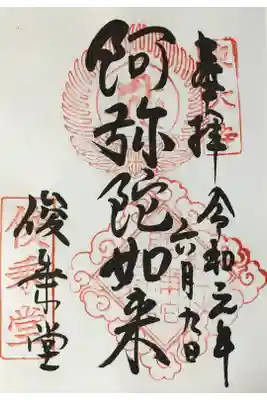 奉拝
令和元年
六月九日
阿弥陀如来
俊乗堂
俊乗堂